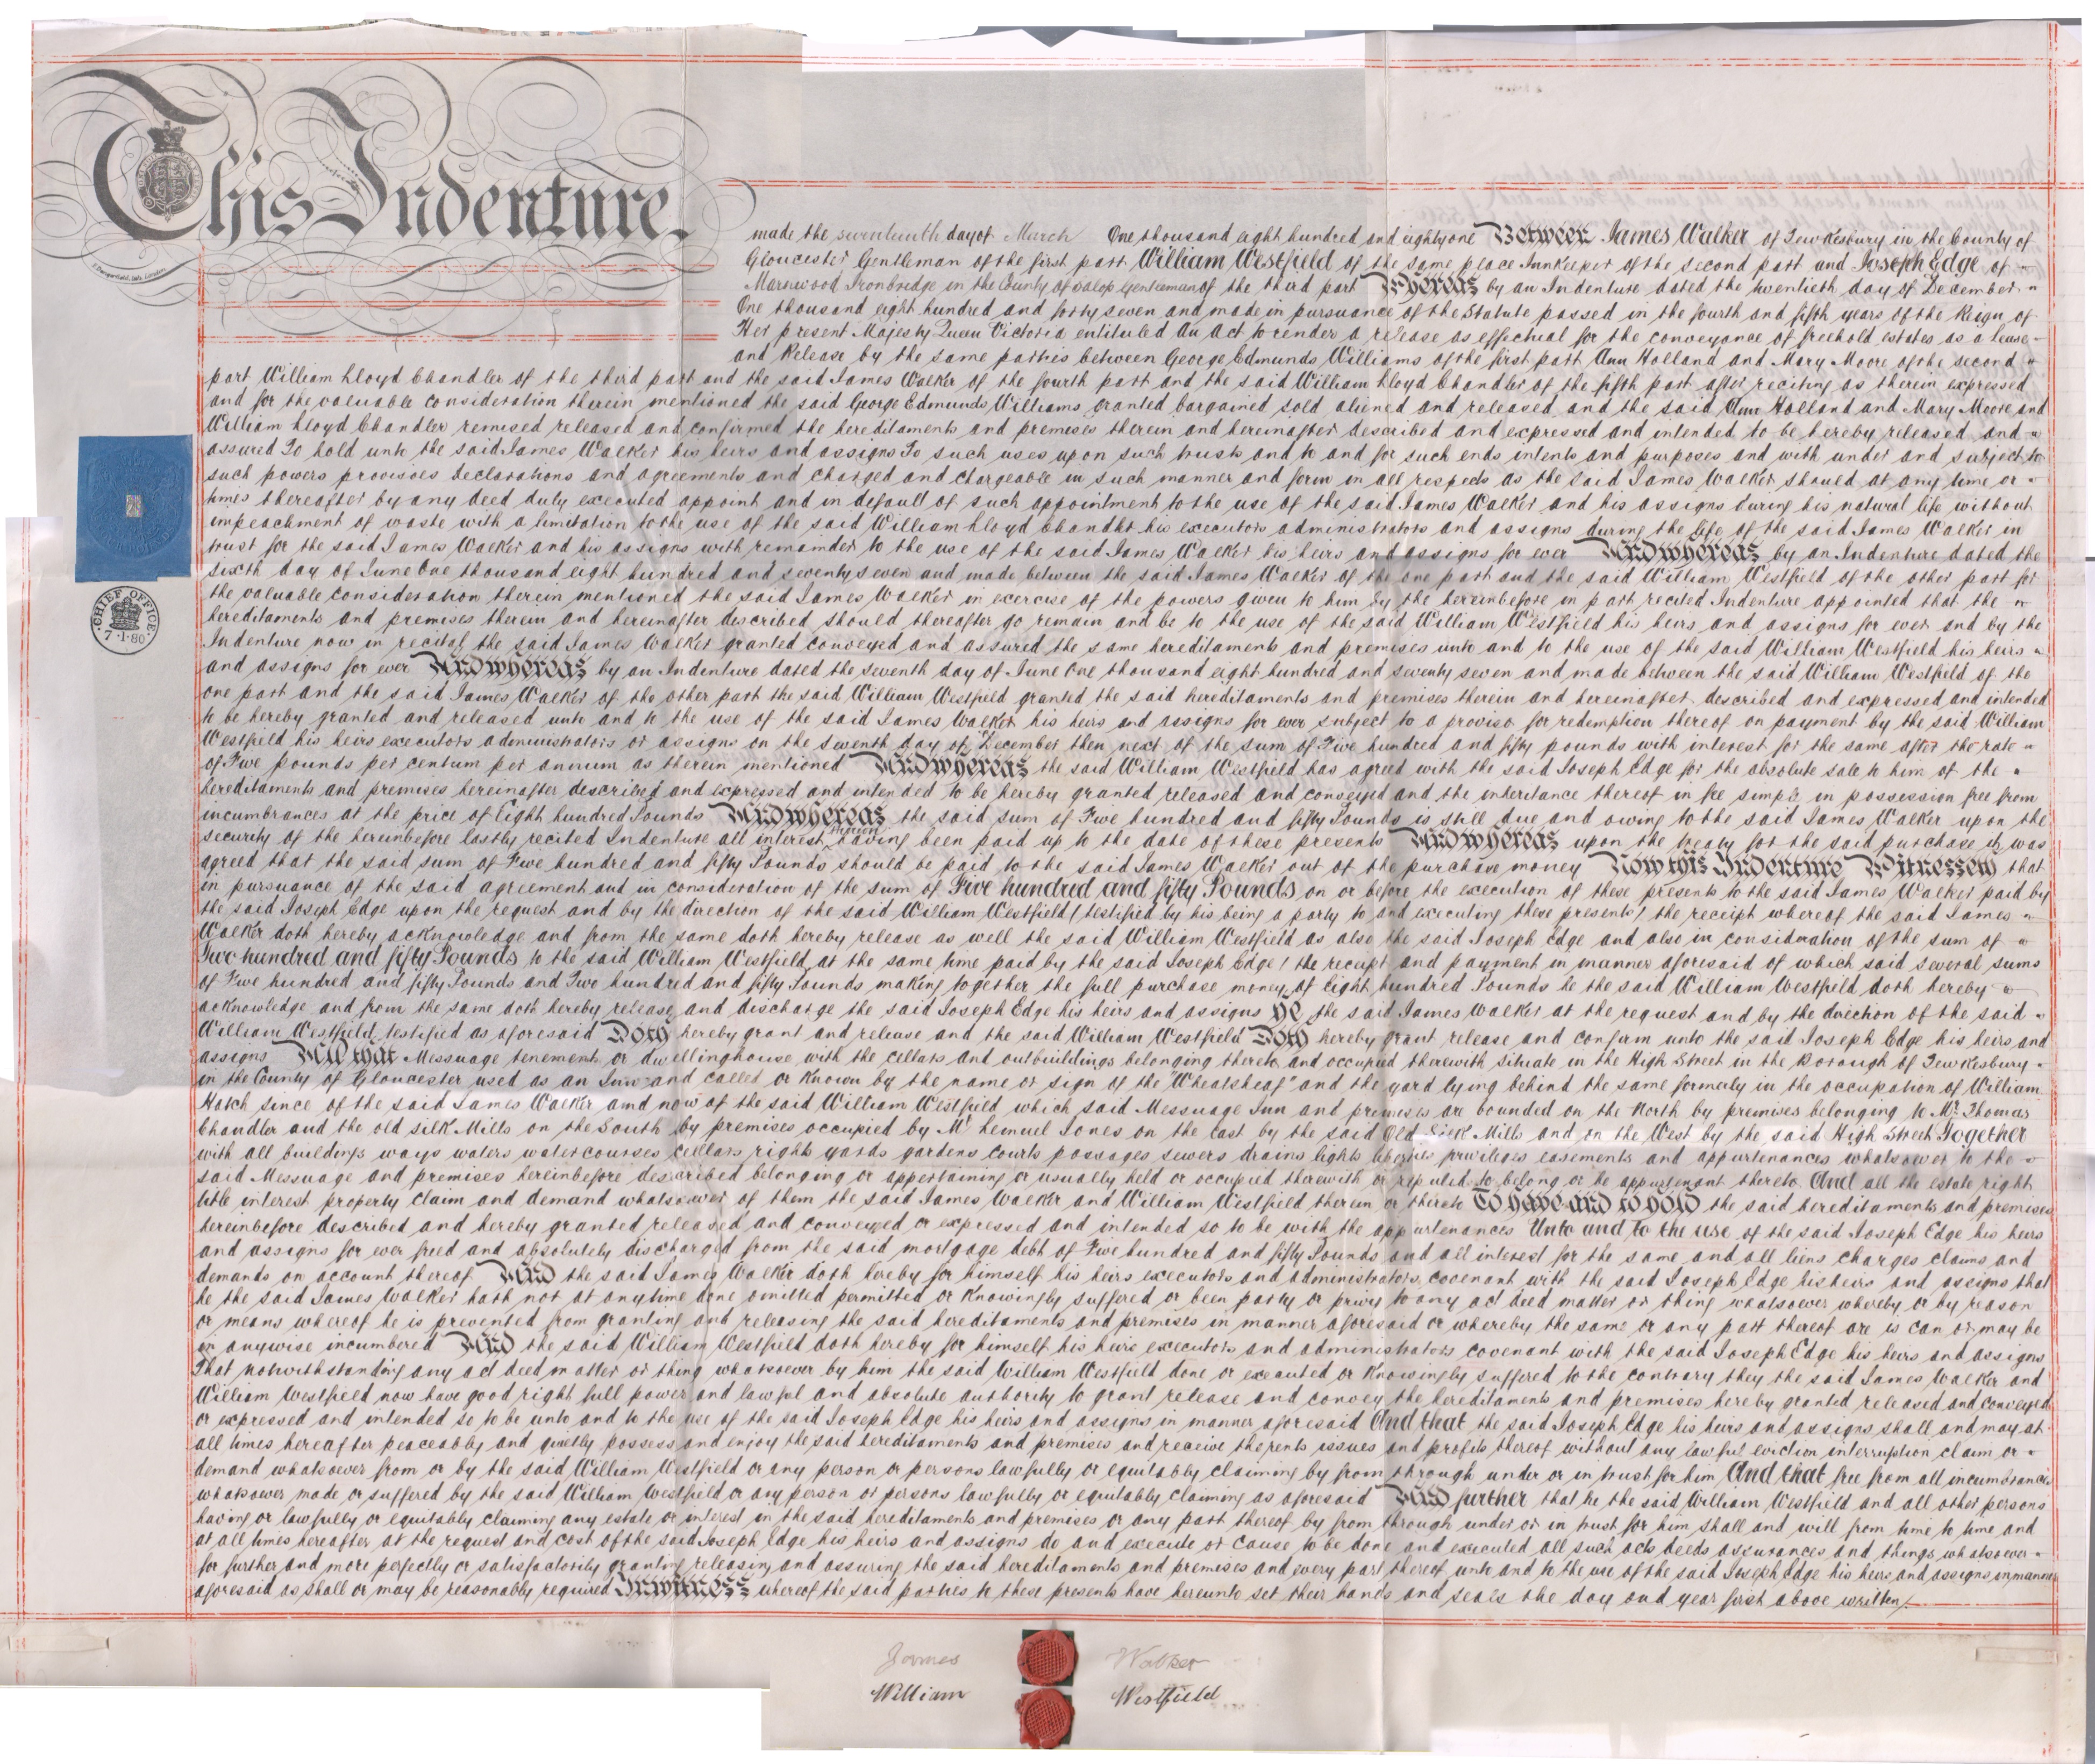 This Indenture
made the seventeenth day of March One thousand eight hundred and eighty one Between James Walker of Tewkesbury in the County of
Gloucester Gentleman of the first part William Westfield of the same place Innkeeper of the second part and Joseph Edge of
Ironbridge in the County of Salop Gentleman of the third part Whereas by an Indenture dated the twentieth day of December
One thousand eight hundred and forty seven and made in pursuance of the Statute passed in the fourth and fifth years of the Reign of
Her present Majesty Queen Victoria entituled An Act to render a release as effectual for the conveyance of freehold estates as a lease
and Release by the same parties between George Edmunds Williams of the first part Ann Holland and Mary Moore of the second
part William Lloyd Chandler of the third part and the said James Walker of the fourth part and the said William Lloyd Chandler of the fifth part after reciting as therein expressed
and for the valuable consideration therein mentioned the said George Edmunds Williams granted bargained sold aliened and released and the said Ann Holland and Mary Moore and
William Lloyd Chandler remised released and confirmed the hereditaments and premises therein and hereinafter described and expressed and intended to be hereby released and
assured To hold unto the said James Walker his heirs and assigns To such uses upon such trusts and to and for such ends intents and purposes and with under and subject to
such powers provisoes declarations and agreements and charged and chargeable in such manner and form in all respects as the said James Walker should at any time or
times thereafter by any deed duly executed appoint and in default of such appointment to the use of the said James Walker and his assigns during his natural life without
impeachment of waste with a limitation to the use of the said William Lloyd Chandler his executors administrators and assigns during the life of the said James Walker in
trust for the said James Walker and his assigns with remainder to the use of the said James Walker his heirs and assigns for ever And whereas by an Indenture dated the
sixth day of June One thousand eight hundred and seventy seven and made between the said James Walker of the one part and the said William Westfield of the other part for
the valuable consideration therein mentioned the said James Walker in exercise of the powers given to him by the hereinbefore in part recited Indenture appointed that the
hereditaments and premises therein and hereinafter described should thereafter go remain and be to the use of the said William Westfield his heirs and assigns for ever and by the
Indenture now in recital the said James Walker granted conveyed and assured the same hereditaments and premises unto and to the use of the said William Westfield his heirs
and assigns for ever And whereas by an Indenture dated the seventh day of June One thousand eight hundred and seventy seven and made between the said William Westfield of the
one part and the said James Walker of the other part the said William Westfield granted the said hereditaments and premises therein and hereinafter described and expressed and intended
to be hereby granted and released unto and to the use of the said James Walker his heirs and assigns for ever subject to a proviso for redemption thereof on payment by the said William
Westfield his heirs executors administrators or assigns on the seventh day of December then next of the sum of Five hundred and fifty pounds with interest for the same after the rate
of Five pounds per centum per annum as therein mentioned And whereas the said William Westfield has agreed with the said Joseph Edge for the absolute sale to him of the
hereditaments and premises hereinafter described and expressed and intended to be hereby granted released and conveyed and the inheritance thereof in fee simple in possession free from
incumbrances at the price of Eight hundred Pounds And whereas the said sum of Five hundred and fifty Pounds is still due and owing to the said James Walker upon the
security of the hereinbefore lastly recited Indenture all interest thereon having been paid up to the date of these presents And whereas upon the treaty for the said purchase it was
agreed that the said sum of Five hundred and fifty Pounds should be paid to the said James Walker out of the purchase money Now this Indenture Witnesseth that
in pursuance of the said agreement and in consideration of the sum of Five hundred and fifty Pounds on or before the execution of these presents to the said James Walker paid by
the said Joseph Edge upon the request and by the direction of the said William Westfield (testified by his being a party to and executing these presents) the receipt whereof the said James
Walker doth hereby acknowledge and from the same doth hereby release as well the said William Westfield as also the said Joseph Edge and also in consideration of the sum of
Two hundred and fifty Pounds to the said William Westfield at the same time paid by the said Joseph Edge (the receipt and payment in manner aforesaid of which said several sums
of Five hundred and fifty Pounds and Two hundred and fifty Pounds making together the full purchase money of Eight hundred Pounds he the said William Westfield doth hereby
acknowledge and from the same doth hereby release and discharge the said Joseph Edge his heirs and assigns He the said James Walker at the request and by the direction of the said
William Westfield testified as aforesaid Doth hereby grant and release and the said William Westfield Doth hereby grant release and confirm unto the said Joseph Edge his heirs and
assigns All that Messuage tenement or dwellinghouse with the cellars and outbuildings belonging thereto and occupied therewith situate in the High Street in the Borough of Tewkesbury
in the County of Gloucester used as an Inn and called or known by the name or sign of the "Wheatsheaf" and the yard lying behind the same formerly in the occupation of William
Hatch since of the said James Walker and now of the said William Westfield which said Messuage Inn and premises are bounded on the North by premises belonging to Mr. Thomas
Chandler and the old silk Mills on the South by premises occupied by Mr Lemuel Jones on the East by the said Old Silk Mills and on the West by the said High Street Together
with all buildings ways waters watercourses cellars rights yards gardens courts passages sewers drains lights liberties privileges easements and appurtenances whatsoever to the
said Messuage and premises hereinbefore described belonging or appertaining or usually held or occupied therewith or reputed to belong or be appurtenant thereto And all the estate right
title interest property claim and demand whatsoever of them the said James Walker and William Westfield therein or thereto To have and to hold the said hereditaments and premises
hereinbefore described and hereby granted released and conveyed or expressed and intended so to be with the appurtenances Unto and to the use of the said Joseph Edge his heirs
and assigns for ever freed and absolutely discharged from the said mortgage debt of Five hundred and fifty Pounds and all interest for the same and all liens charges claims and
demands on account thereof And the said James Walker doth hereby for himself his heirs executors and administrators covenant with the said Joseph Edge his heirs and assigns that
he the said James Walker hath not at any time done omitted permitted or knowingly suffered or been party or privy to any act deed matter or thing whatsoever whereby or by reason
or means whereof he is prevented from granting and releasing the said hereditaments and premises in manner aforesaid or whereby the same or any part thereof are is can or may be
in anywise incumbered And the said William Westfield doth hereby for himself his heirs executors and administrators covenant with the said Joseph Edge his heirs and assigns
That notwithstanding any act deed matter or thing whatsoever by him the said William Westfield done or executed or knowingly suffered to the contrary they the said James Walker and
William Westfield now have good right full power and lawful and absolute authority to grant release and convey the hereditaments and premises hereby granted released and conveyed
or expressed and intended so to be unto and to the use of the said Joseph Edge his heirs and assigns in manner aforesaid And that the said Joseph Edge his heirs and assigns shall and may at
all times hereafter peaceably and quietly possess and enjoy the said hereditaments and premises and receive the rents issues and profits thereof without any lawful eviction interruption claim or
demand whatsoever from or by the said William Westfield or any person or persons lawfully or equitably claiming by from through under or in trust for him And that free from all incumbrances
whatsoever made or suffered by the said William Westfield or any person or persons lawfully or equitably claiming as aforesaid And further that he the said William Westfield and all other persons
having or lawfully or equitably claiming any estate or interest in the said hereditaments and premises or any part thereof by from through under or in trust for him shall and will from time to time and
at all times hereafter at the request and cost of the said Joseph Edge his heirs and assigns do and execute or cause to be done and executed all such acts deeds assurances and things whatsoever
for further and more perfectly or satisfactorily granting releasing and assuring the said hereditaments and premises and every part thereof unto and to the use of the said Joseph Edge his heirs and assigns in manner
aforesaid as shall or may be reasonably required In witness whereof the said parties to these presents have hereunto set their hands and seals the day and year first above written
CHIEF OFFICE
7·1·80
James Walker
William Westfield